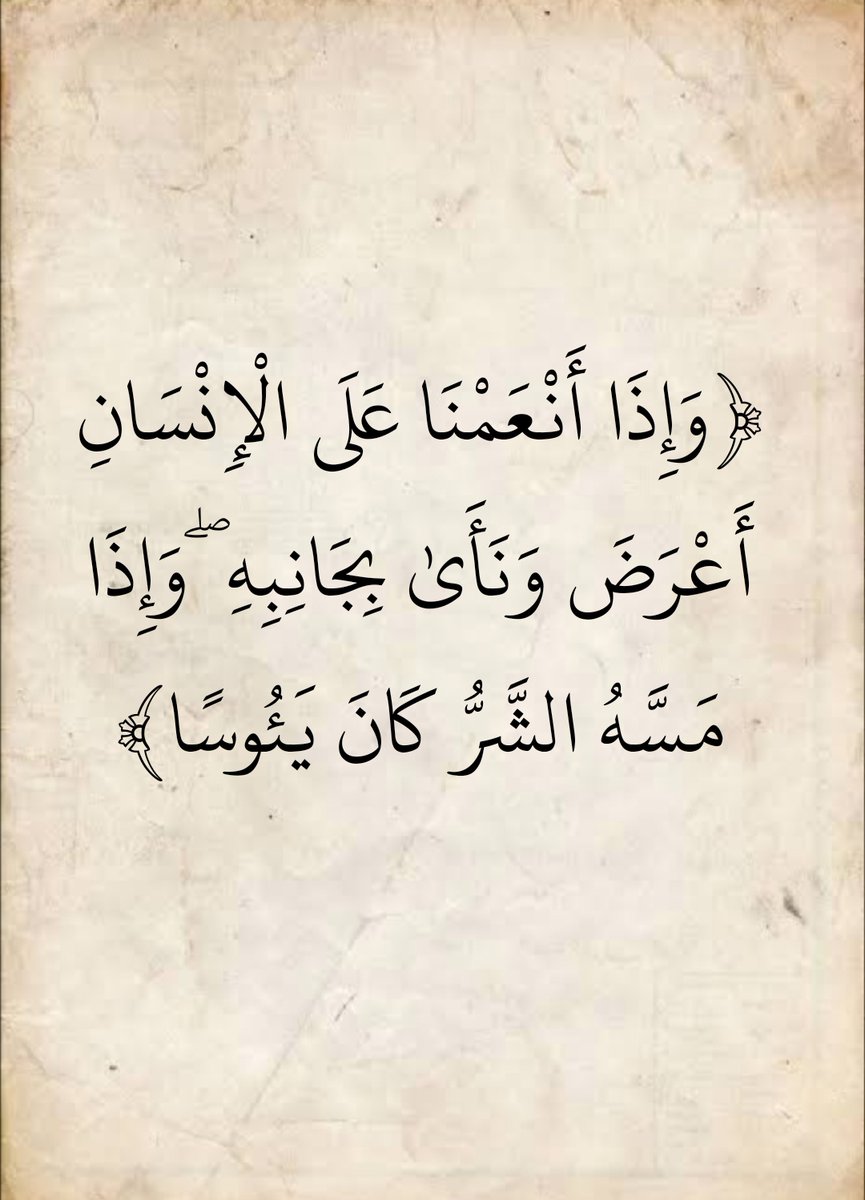 ﴿وَإِذَا أَنْعَمْنَا عَلَى الْإِنْسَانِ
أَعْرَضَ وَنَأَىٰ بِجَانِبِهِ ۖ وَإِذَا
مَسَّهُ الشَّرُّ كَانَ يَئُوسًا﴾